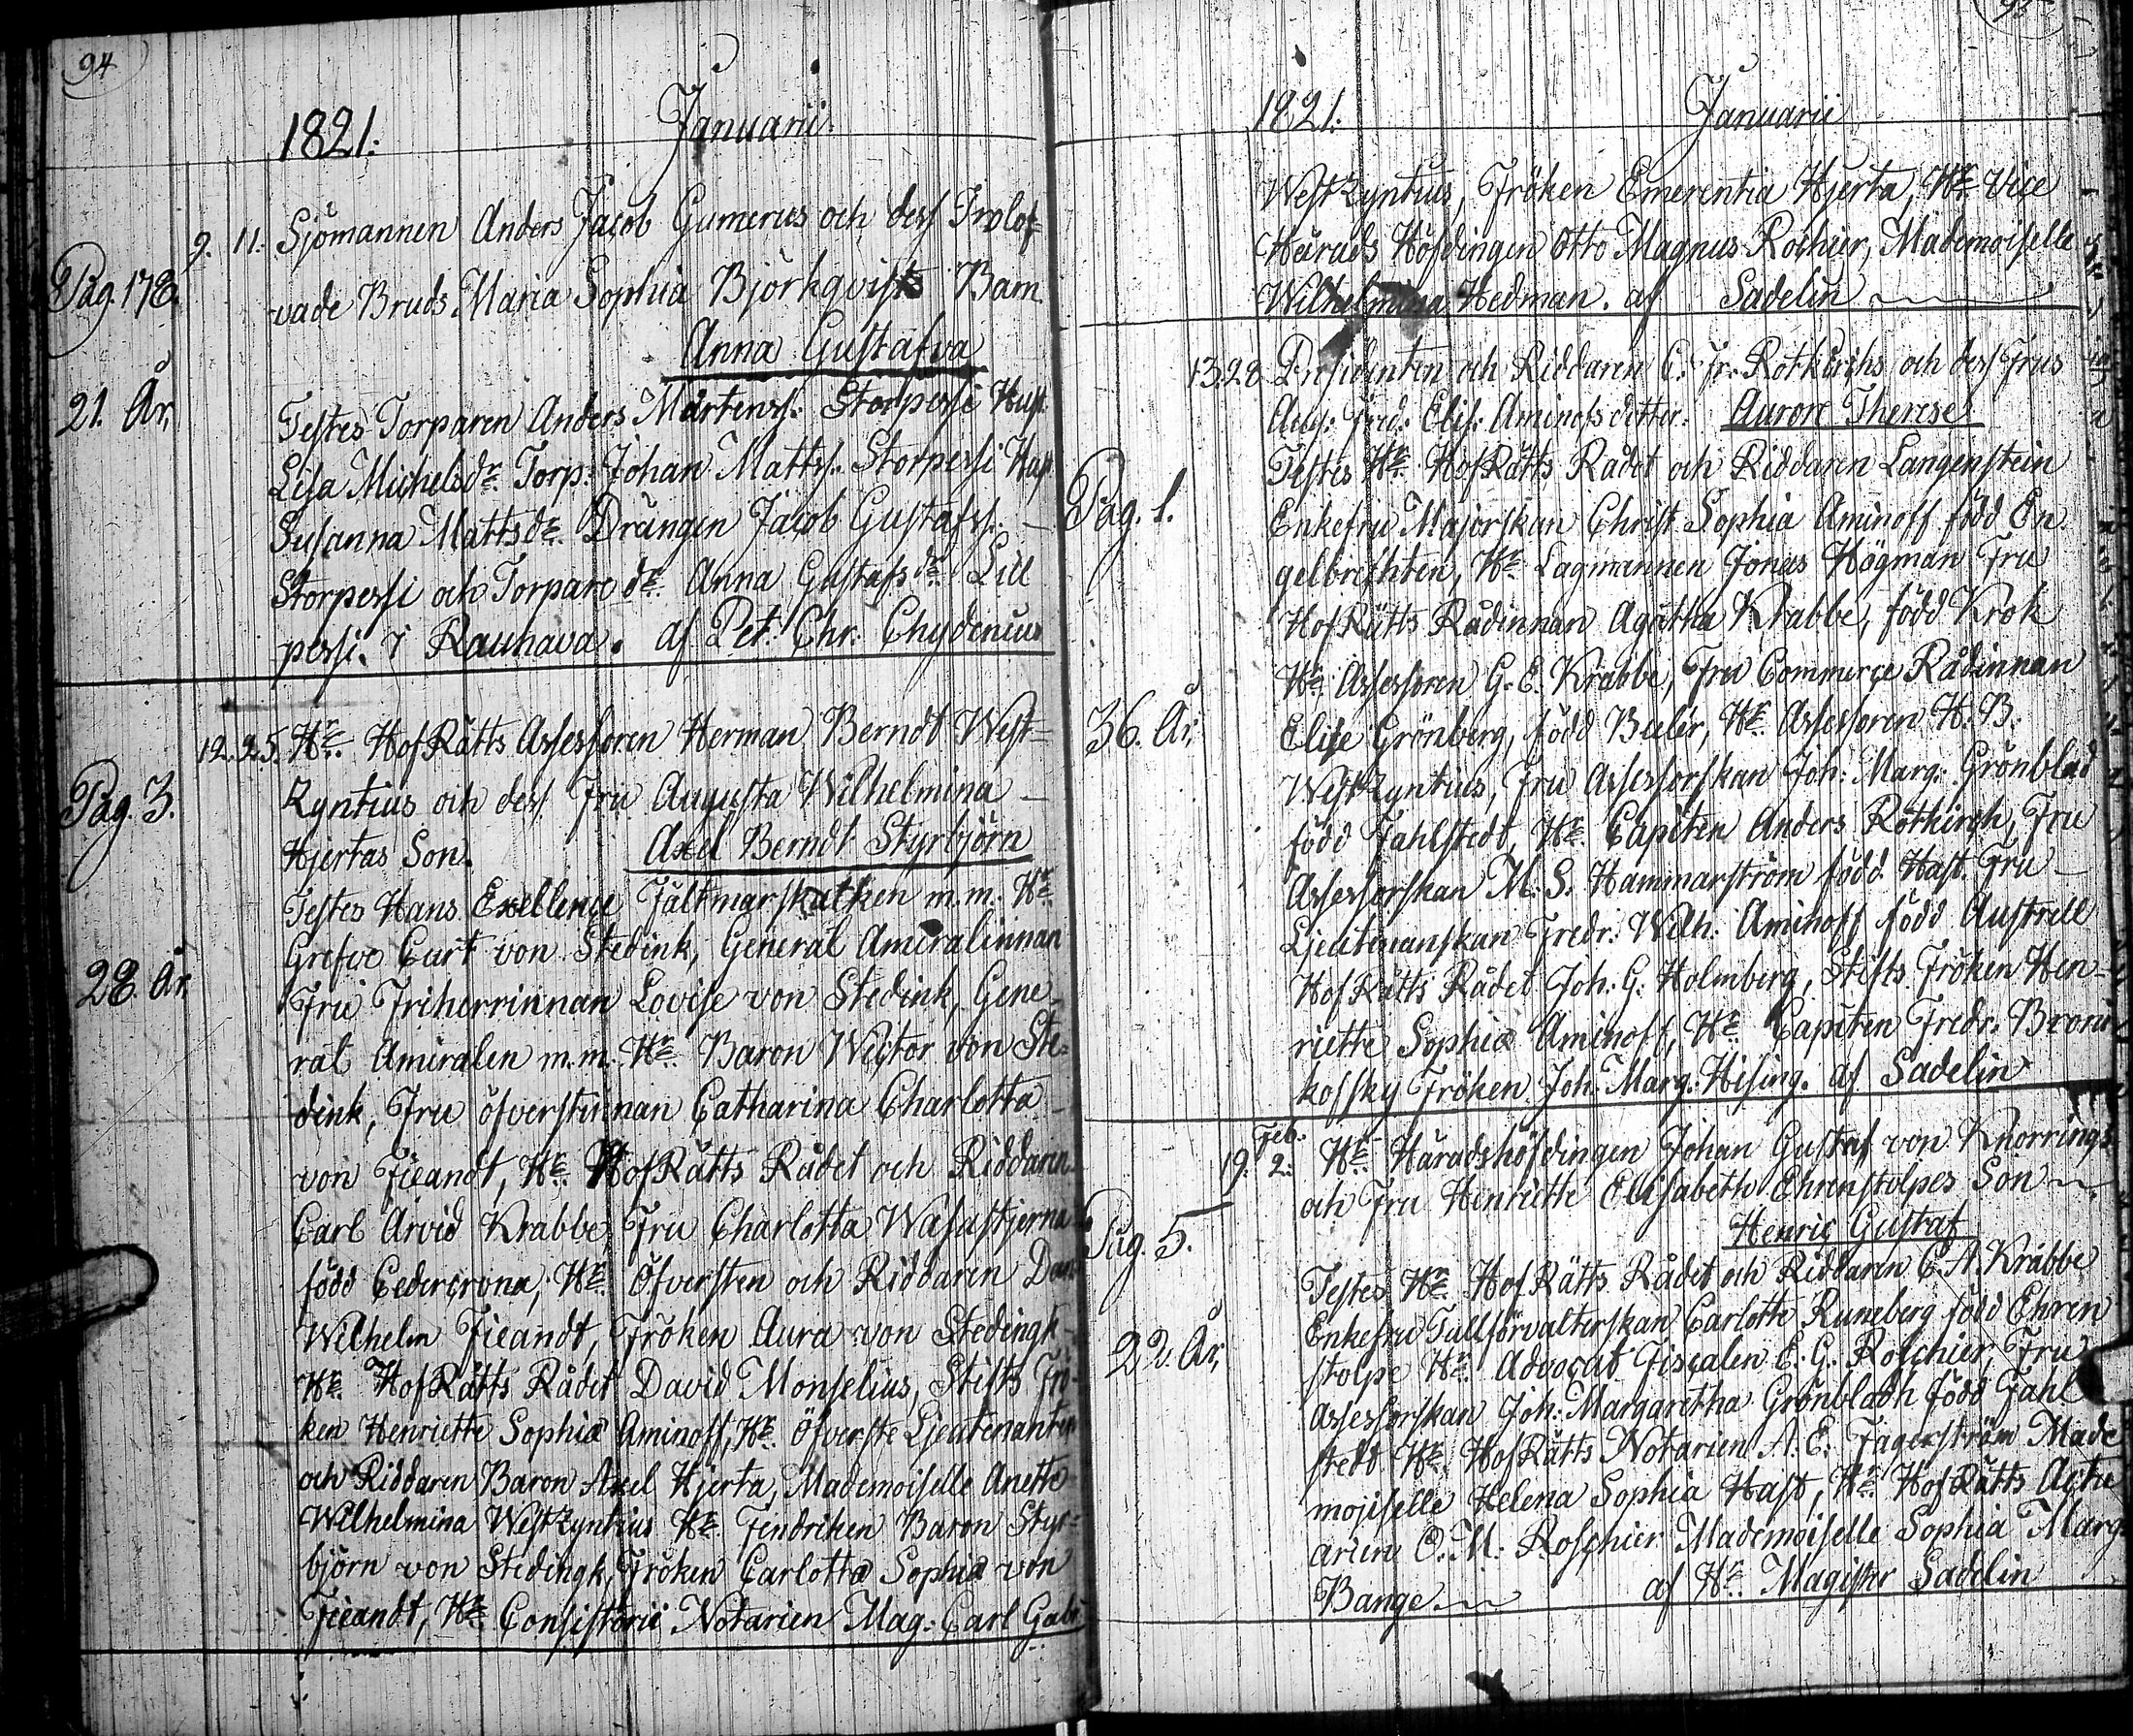 94
1821. Januarii
9. 11. Sjömannen Anders Jacob Gumerus och dess Trolof-
Pag. 178. vade Bruds Maria Sophia Björkqvists Barn
Anna Gustafva
21. År, Testes Torparen Anders Mårtenss. Storpersi Hust.
Lisa Michelsdr. Torp: Johan Mattss. Storpersi Hust.
Susanna Mattsdr. Drängen Jacob Gustafss. –
Storpersi och Torpare dr. Anna Gustafsdr. Lill
persi. i Kauhava. af Pet: Chr: Chydenius
12. 25. Hr. HofRätts Assessoren Herman Berndt West-
Pag. 3. Zyntius och dess Fru Augusta Wilhelmina –
Hjertas Son. Axel Berndt Styrbjörn
Testes Hans Exellence Fältmarskalken m.m. Hr.
Grefve Curt von Stedink, General Amiralinnan
28. År, Fru Friherrinnan Lovise von Stedink, Gene-
ral Amiralen m.m. Hr. Baron Wictor von Ste-
dink, Fru öfverstinnan Catharina Charlotta
von Fieandt, Hr. HofRätts Rådet och Riddaren
Carl Arvid Krabbe, Fru Charlotta Wasastjerna
född Cedercrona, Hr. Öfversten och Riddaren Dan
Wilhelm Fieandt, Fröken Aura von Stedingk
Hr. HofRätts Rådet David Monselius, Stifts Frö-
ken Henriette Sophia Aminoff, Hr. Öfverste Ljeutenanten
och Riddaren Baron Axel Hjerta, Mademoiselle Anette
Wilhelmina WestZyntius Hr. Fendriken Baron Styr-
björn von Stedingk, Fröken Carlotta Sophia von
Fieandt, Hr. Consistorii Notarien Mag. Carl Gabr
95
1821. Januarii
WestZyntius, Fröken Emerentia Hjerta, Hr. Vice
Härads Höfdingen Otto Magnus Roschier, Mademoiselle
Wilhelmina Hedman. af Sadelin
13. 28. Presidenten och Riddaren C. Fr. Rotkirchs och dess Frus
Aug: Fred: Elis: Aminofs dotter. Aurore Therese
Testes Hr. HofRätts Rådet och Riddaren Langenstein
Pag. 1. Enkefru Majorskan Christ. Sophia Aminoff född En
gelbrechten, Hr. Lagmannen Jonas Högman Fru
HofRätts Rådinnan Agatha Krabbe, född Krok
Hr. Assessoren G. E. Krabbe, Fru Commerce Rådinnan
36. År, Elise Grönberg, född Bülér, Hr. Assessoren H. B.
WestZyntius, Fru Assessorskan Joh: Marg: Grönblad
född Fahlstedt, Hr. Capiten Anders Rotkirch, Fru
Assessorskan M. S. Hammarström född Hast. Fru –
Ljeutenanskan Fredr: Wilh: Aminoff född Austrell
HofRätts Rådet Joh. G. Holmberg, Stifts Fröken Hen-
riette Sophia Aminoff, Hr. Capiten Fredr. Broni
kofsky Fröken Joh: Marg: Hising. af Sadelin
Feb.
19. 2. Hr. Häradshöfdingen Johan Gustaf von Knorrings
och Fru Henriette Elisabeth Ehrenstolpes Son
Pag. 5. Henric Gustaf
Testes Hr. HofRätts Rådet och Riddaren C. A. Krabbe
Enkefru Tullförvalterskan Carlotte Runeberg född Ehren
22. År, stolpe Hr. Advocat Fiscalen E. G. Roschier, Fru
Assessorskan Joh: Margaretha Grönbladh född Fahl
stedt Hr. HofRätts Notarien A. E. Fagerström Made
moiselle Helena Sophia Hast, Hr. HofRätts Actu
arien O. M. Roschier Mademoiselle Sophia Marg
Bange. af Hr. Magister Sadelin